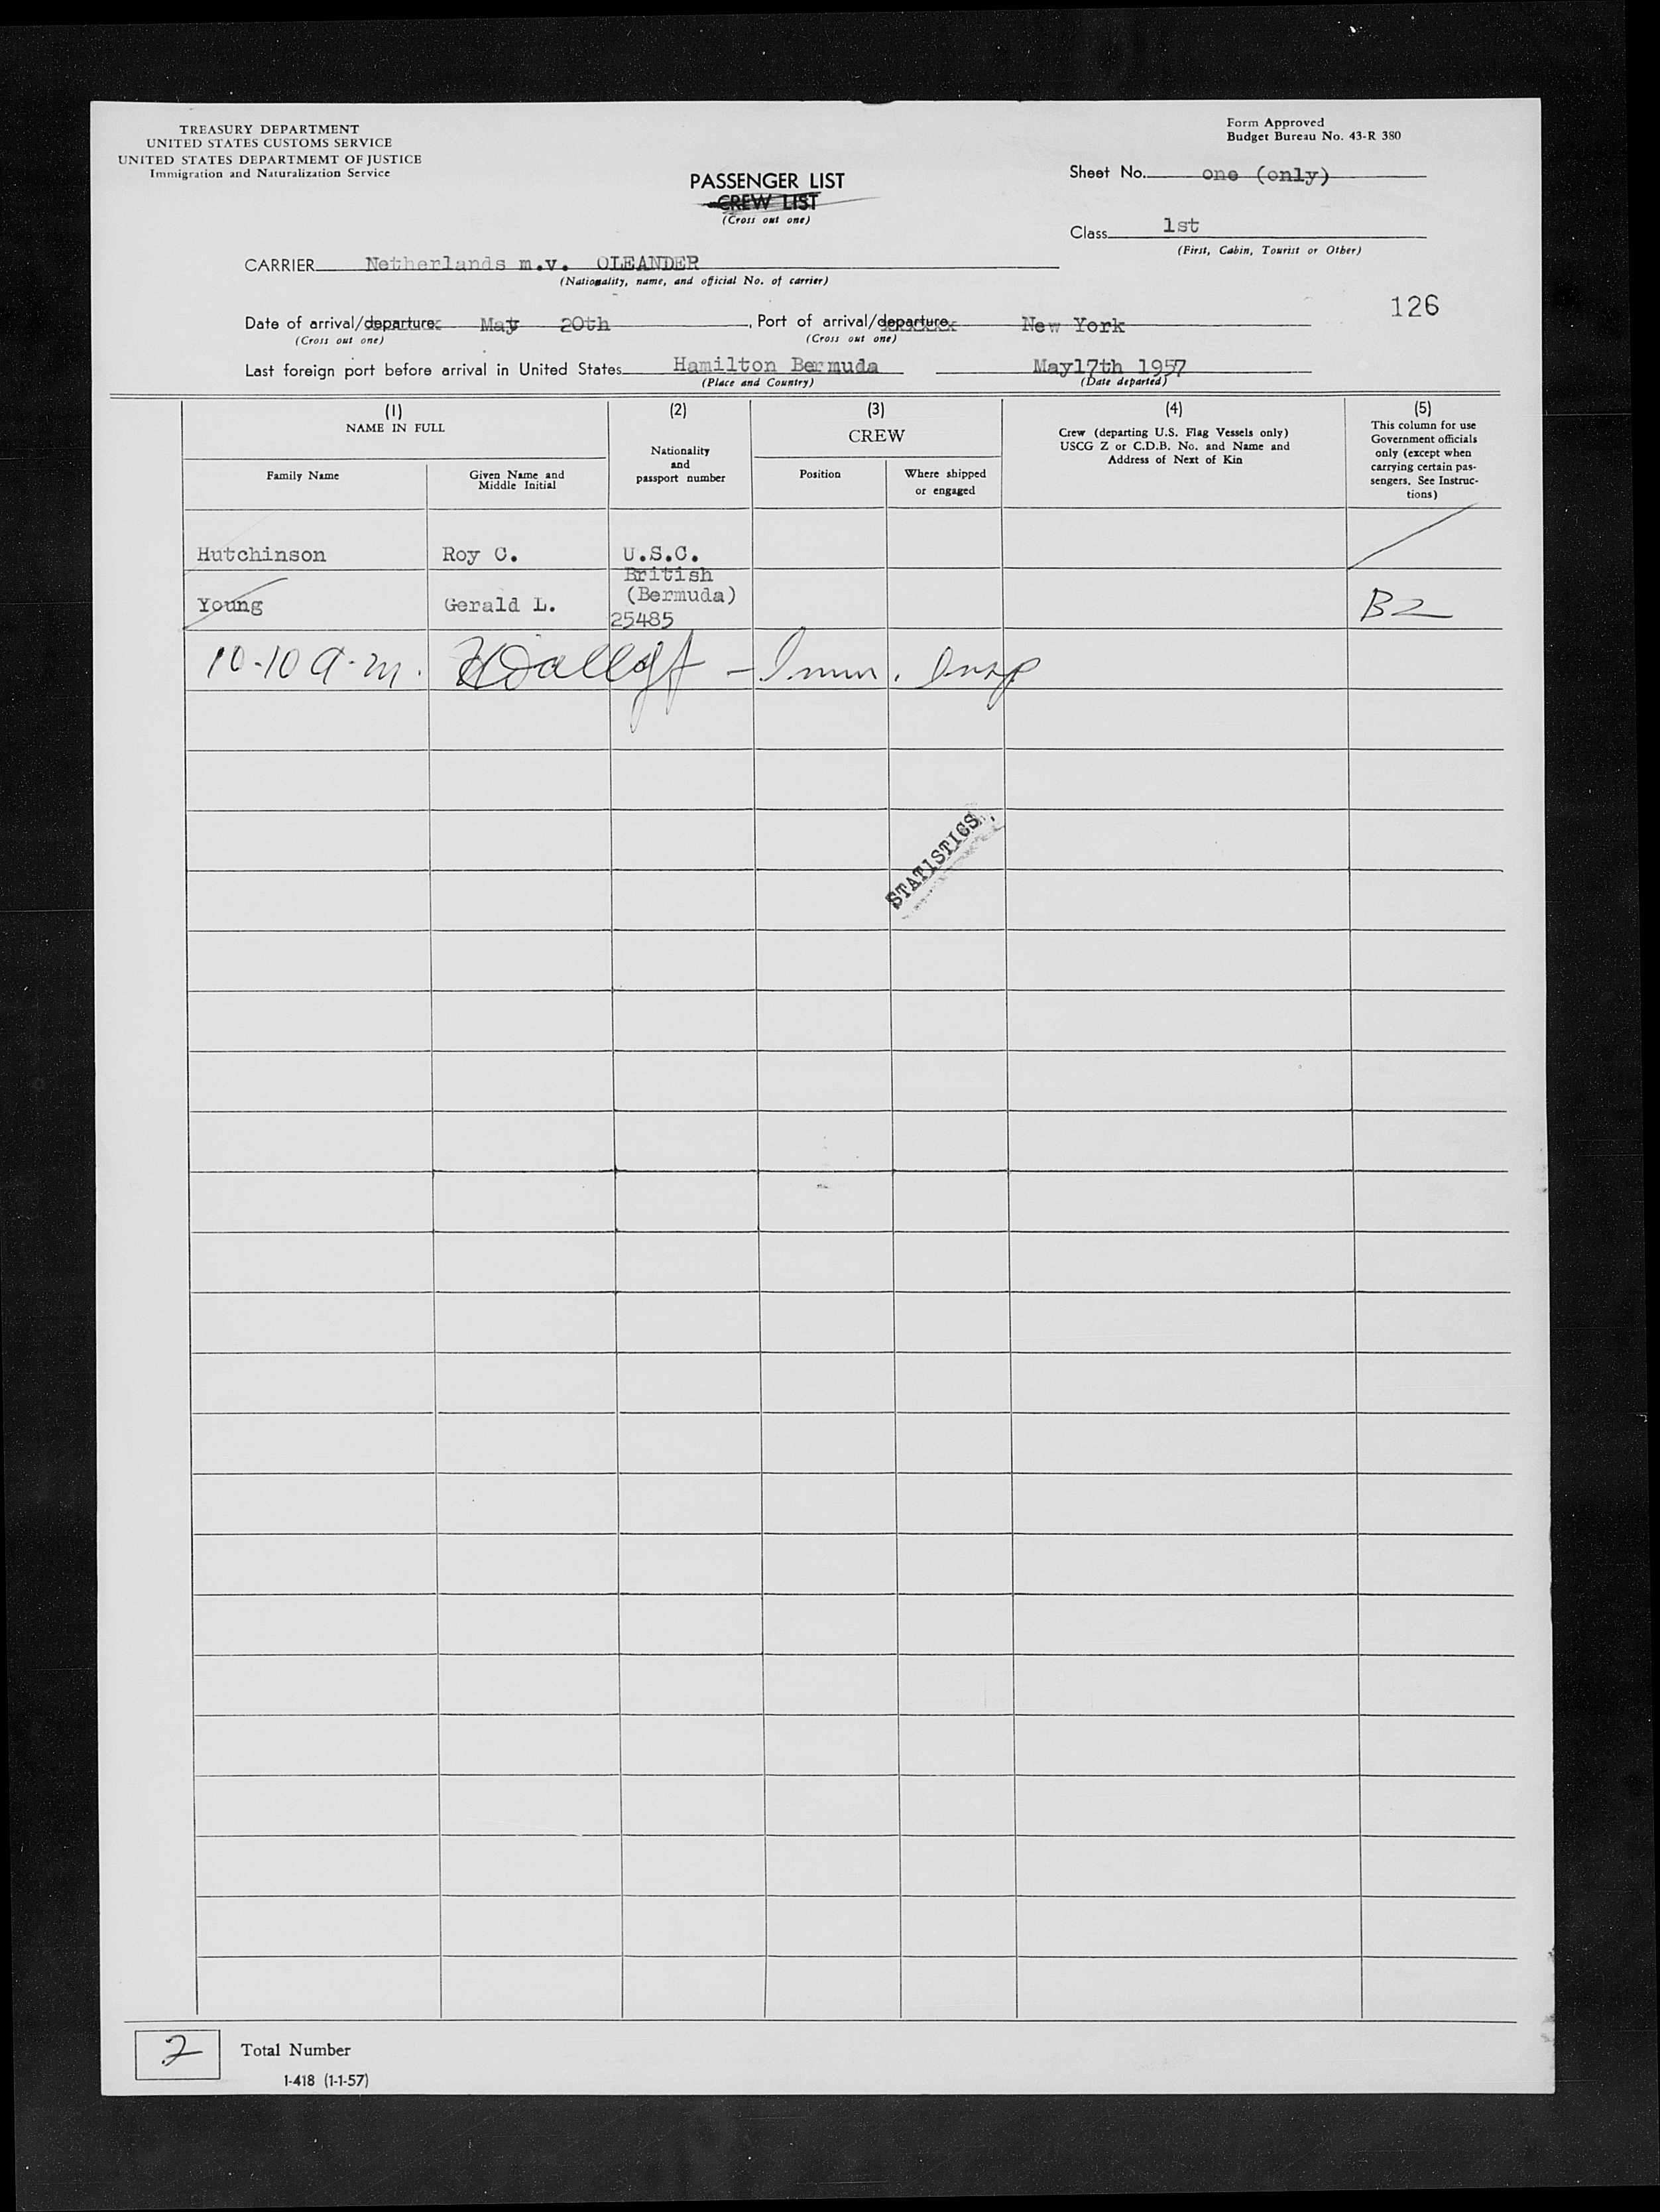 TREASURY DEPARTMENT
UNITED STATES CUSTOMS SERVICE
UNITED STATES DEPARTMEMT OF JUSTICE
Immigration and Naturalization Service
Form Approved
Budget Bureau No. 43-R 380
PASSENGER LIST
CREW LIST
(Cross out one)
Sheet No. one (only)
Class 1st
(First, Cabin, Tourist or Other)
CARRIER Netherlands m.v. OLEANDER
(Nationality, name, and official No. of carrier)
126
Date of arrival/departure May 20th , Port of arrival/departure New York
(Cross out one) (Cross out one)
Last foreign port before arrival in United States Hamilton Bermuda May17th 1957
(Place and Country) (Date departed)
(1) (2) (3) (4) (5)
NAME IN FULL
Family Name
Given Name and
Middle Initial
Nationality
and
passport number
CREW
Position
Where shipped
or engaged
Crew (departing U.S. Flag Vessels only)
USCG Z or C.D.B. No. and Name and
Address of Next of Kin
This column for use
Government officials
only (except when
carrying certain pas-
sengers. See Instruc-
tions)
Hutchinson Roy C. U.S.C.
British
(Bermuda)
Young Gerald L. 25485 B2
10-10 a.m. - Imm. Insp
STATISTICS
2 Total Number
I-418 (1-1-57)